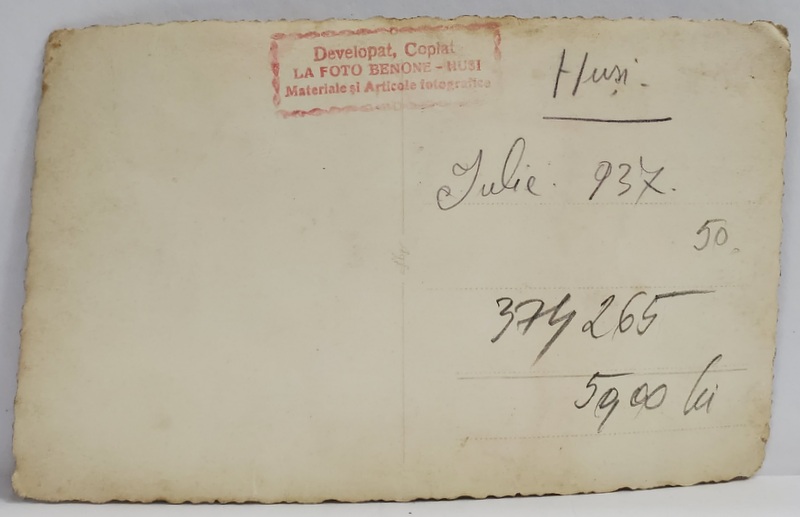 Developat, Copiat
LA FOTO BENONE - HUSI
Materiale și Articole fotografice
Huși.
Iulie. 937.
50.
374265
5900 lei